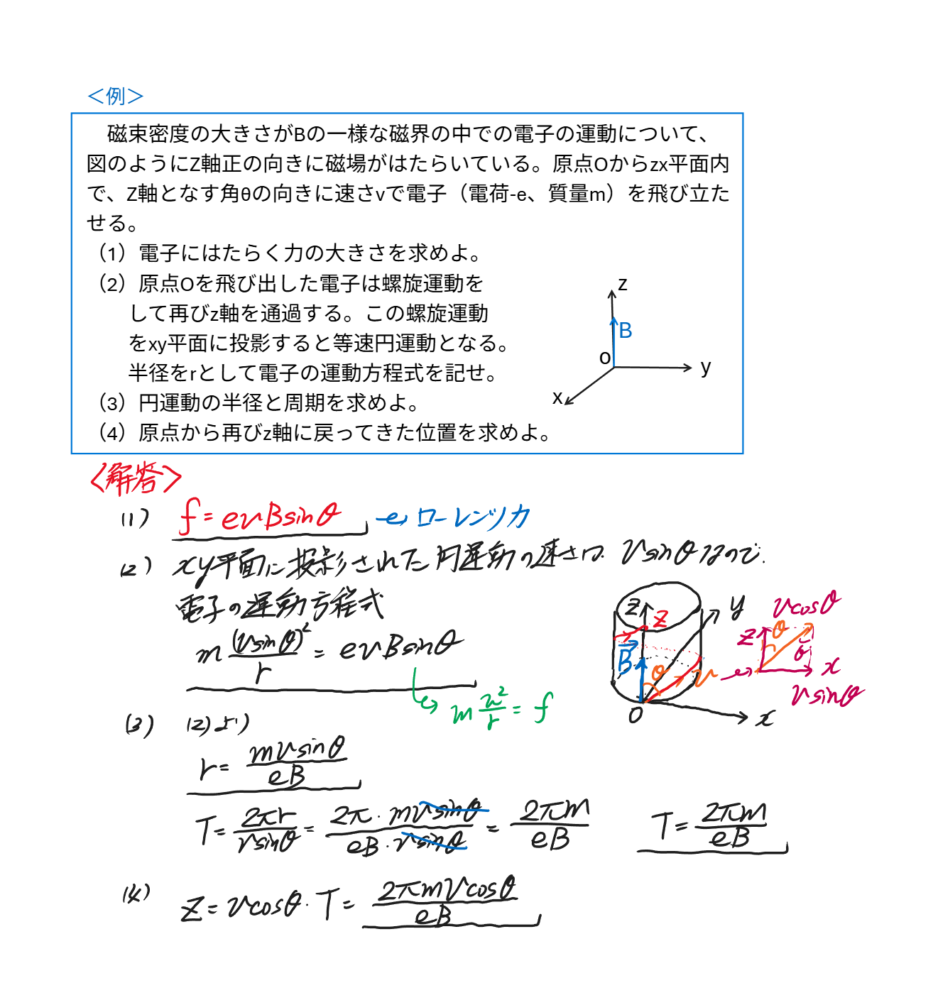 ＜例＞
磁束密度の大きさがBの一様な磁界の中での電子の運動について、
図のようにZ軸正の向きに磁場がはたらいている。原点Oからzx平面内
で、Z軸となす角θの向きに速さvで電子（電荷-e、質量m）を飛び立た
せる。
（1）電子にはたらく力の大きさを求めよ。
（2）原点Oを飛び出した電子は螺旋運動を
して再びz軸を通過する。この螺旋運動
をxy平面に投影すると等速円運動となる。
半径をrとして電子の運動方程式を記せ。
（3）円運動の半径と周期を求めよ。
（4）原点から再びz軸に戻ってきた位置を求めよ。
z
B
o
y
x
〈解答〉
(1) f=evBsinθ ローレンツ力
(2) xy平面に投影された円運動の速さは vsinθなので.
電子の運動方程式
m (vsinθ)²/r = evBsinθ
m v²/r = f
z z y
B θ v
O x
vcosθ
z θ θ
-e x
vsinθ
(3) (2)より
r= mvsinθ/eB
T= 2πr/vsinθ = 2π・mvsinθ/eB・vsinθ = 2πm/eB T= 2πm/eB
(4) Z=vcosθ・T= 2πmvcosθ/eB